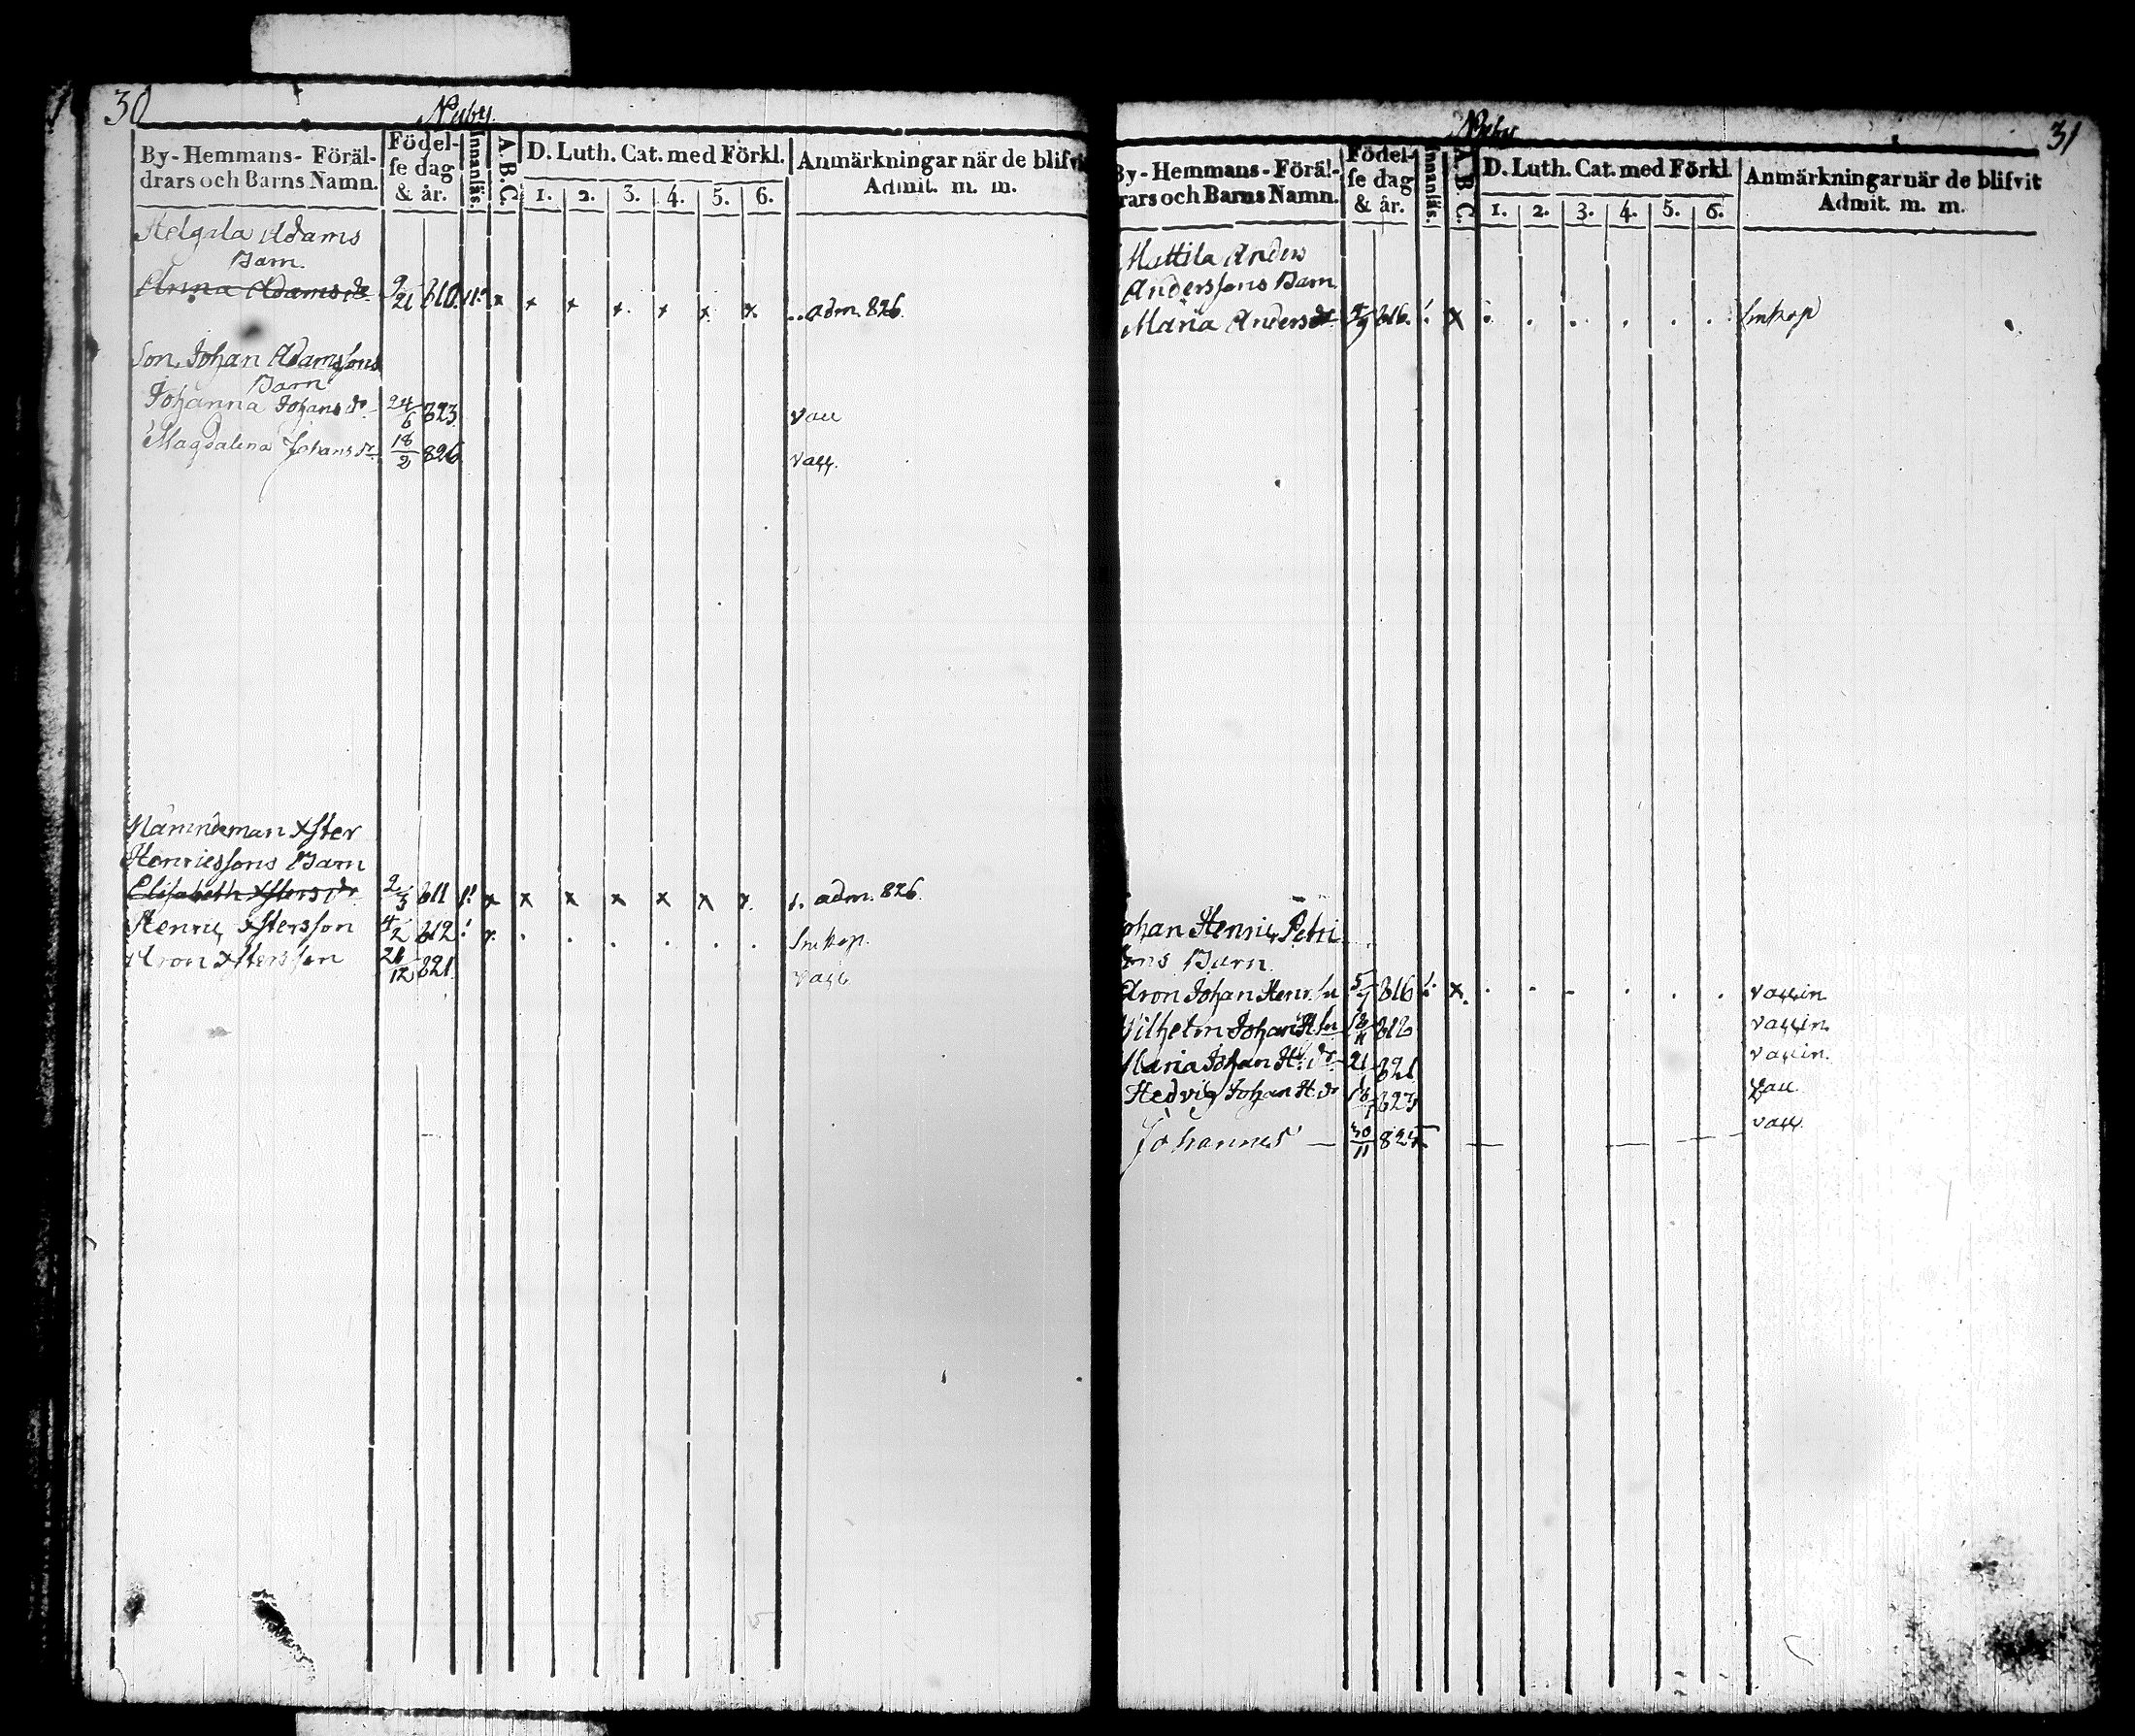 30
Nyby.
By-Hemmans-Föräl-
drars och Barns Namn.
Födel-
se dag
& år.
Innanläs.
A.B.C.
D. Luth. Cat. med Förkl.
1. 2. 3. 4. 5. 6.
Anmärkningar när de blifvi
Admit. m. m.
Helgala Adams
Barn.
Anna Adams dr 9/21 810 x x x x x x x adm. 826.
Son Johan Adamssons
Barn
Johanna Johans dr 24/6 823 vacc
Magdalena Johans dr 18/2 826 vacc.
Nämndeman Xster
Henricssons Barn
Elisabeth Xsters dr 2/3 811 x x x x x x x adm. 826.
Henric Xstersson 4/2 812 Smkop.
Aron Xstersson 21/12 821 vacc
Nyby
31
By-Hemmans-Föräl-
rars och Barns Namn.
Födel-
se dag
& år.
Innanläs.
A. B. C.
D. Luth. Cat. med Förkl.
1. 2. 3. 4. 5. 6.
Anmärkningar när de blifvit
Admit. m. m.
Mattila Anders
Anderssons Barn
Maria Anders dr 816. x Smkop
Johan Henric Petri
sons Barn.
Aron Johan Henr. sn 5/7 816 x vaccin
Wilhelm Johan H sn 18/11 818 vaccin.
Maria Johan H. dr 21 821 vaccin.
Hedvig Johan H dr 823 vacc
Johannes — 30/11 825 vacc.